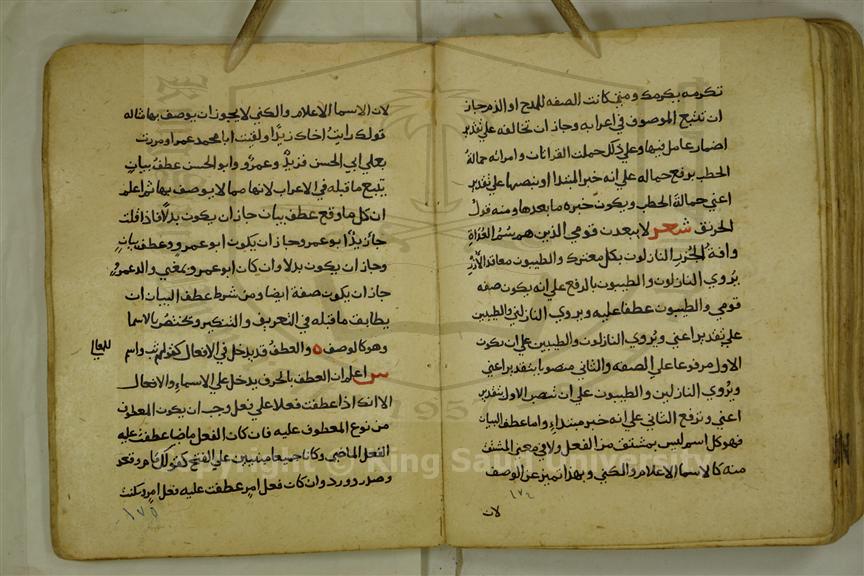 تكرمه بكرمك ومتي كانت الصفه للمدح او الذم جاز
ان تتبع الموصوف في اعرابه وجاز ان تخالفه علي تقدير
اضمار عامل فيها وعلي ذلك حملت القراات وامراته حمالة
الحطب برفع حماله علي انه خبر المبتدا او بنصبها علي تقدير
اعني حمالة الحطب ويكون خبره ما بعدها ومنه قول
الخرنق شعر لا يبعدن قومي الذين هم سُمُ العُدَاةِ
وافةُ الجُزرِ النازلون بكل معترك والطيبون معاقد الأزُرِ
يُروي النازلون والطيبون بالرفع علي انه يكون صفه
قومي والطيبون عطفا عليه ويروي النازلين والطيبين
علي تقدير اعني ويُروي النازلون والطيبين علي ان يكون
الاول مرفوعا علي الصفه والثاني منصوبا بتقدير اعني
ويُروي النازلين والطيبون علي ان تنصب الاول بتقدير
اعني وترفع الثاني علي انه خبر مبتداءٍ واما عطف البيان
فهو كل اسم ليس بمشتق من الفعل ولا في معني المشتق
منه كالاسما الاعلام والكني وبهذا تميز عن الوصف
١٧٤
لان
لان الاسما الاعلام والكني لا يجوز ان يوصف بها مثاله
قولك رايتُ اخاك زيدًا ولقيت ابا محمد عمرا ومررت
بعلي ابي الحسن فزيدٌ وعمرٌو وابو الحسن عطف بيانٍ
يتبع ما قبله في الاعراب لانها مما لا يوصف بها ثم اعلم
ان كل ما وقع عطف بيان جاز ان يكون بدلًا فاذا قلت
جا زيدٌ ابو عمرٍ وجاز ان يكون ابو عمرٍو عطف بيانٍ
وجاز ان يكون بدلا وان كان ابو عمرٍو بمعني والد عمرٍو
جاز ان يكون صفة ايضا ومن شرط عطف البيان ان
يطابق ما قبله في التعريف والتنكير ويختص بالاسما
وهو كالوصف ه والعطف قد يدخل في الافعال كقولهم ثب واسم
للمعالي
س اعلم ان العطف بالحرف يدخل علي الاسماءِ والافعال
الا انك اذا عطفت فعلا علي فعل وجب ان يكون المعطوف
من نوع المعطوف عليه فان كان الفعل ماضيا عطفت عليه
الفعل الماضي وكانا جميعا مبنيين علي الفتح كقولك قام وقعد
وصدر وورد وان كان فعل امرٍ عطفت عليه فعل امرٍ
١٧٥